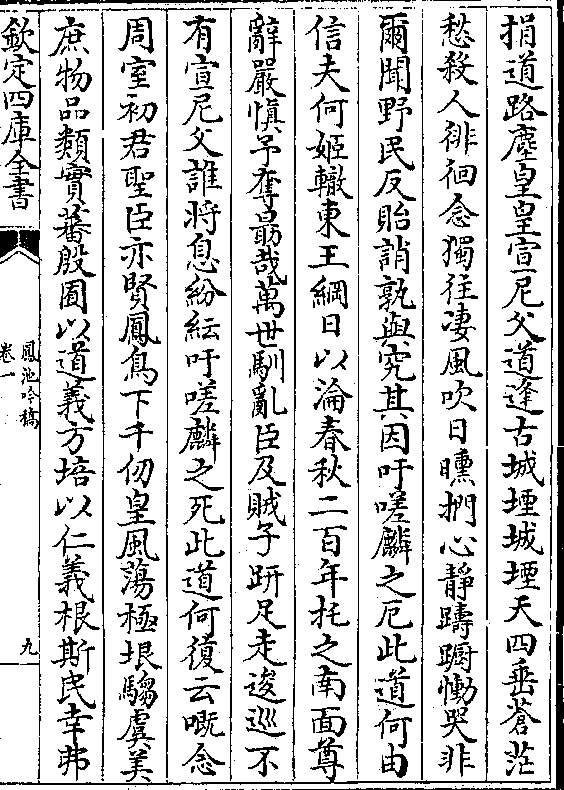 捐道路塵皇皇宣尼父道逢古城堙城堙天四垂蒼茫
愁殺人徘徊念獨往凄風吹日曛捫心靜躊躕慟哭非
爾聞野民反貽誚孰與究其因吁嗟麟之厄此道何由
信夫何姬轍東王綱日以淪春秋二百年托之南面尊
辭嚴慎予奪勗哉萬世馴亂臣及賊子趼足走逡巡不
有宣尼父誰將息紛紜吁嗟麟之死此道何復云嘅念
周室初君聖臣亦賢鳳鳥下千仞皇風蕩極垠騶虞美
庶物品類實蕃殷囿以道義方培以仁義根斯民幸弗
欽定四庫全書
鳳池吟稿
卷一
九